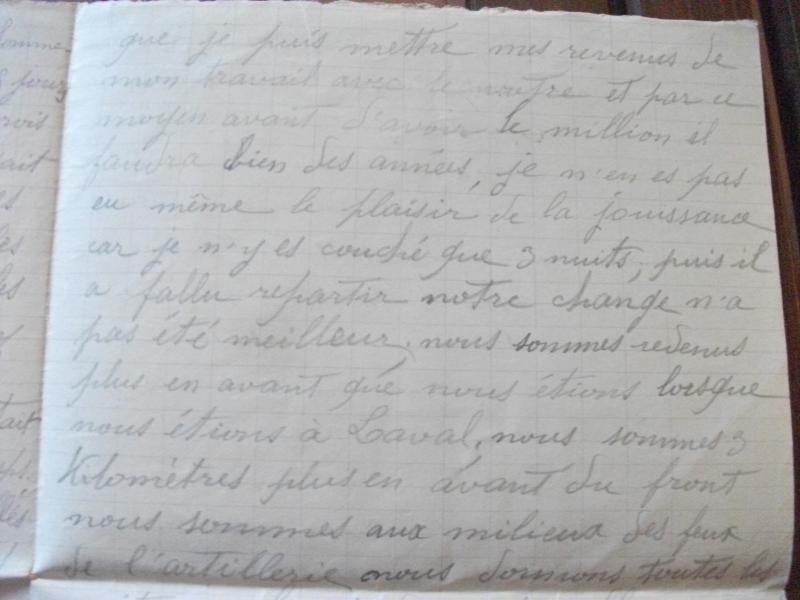 que je puis mettre mes revenus de
mon travail avec le notre et par ce
moyen avant d'avoir le million il
faudra bien des années, je n'en es pas
eu même le plaisir de la jouissance
car je n'y es couché que 3 nuits, puis il
a fallu repartir notre change n'a
pas été meilleur, nous sommes redenus
plus en avant que nous étions lorsque
nous étions à Laval, nous sommes 3
Kilomètres plus en avant du front
nous sommes aux milieux des feux
de l'artillerie nous dormons toutes les